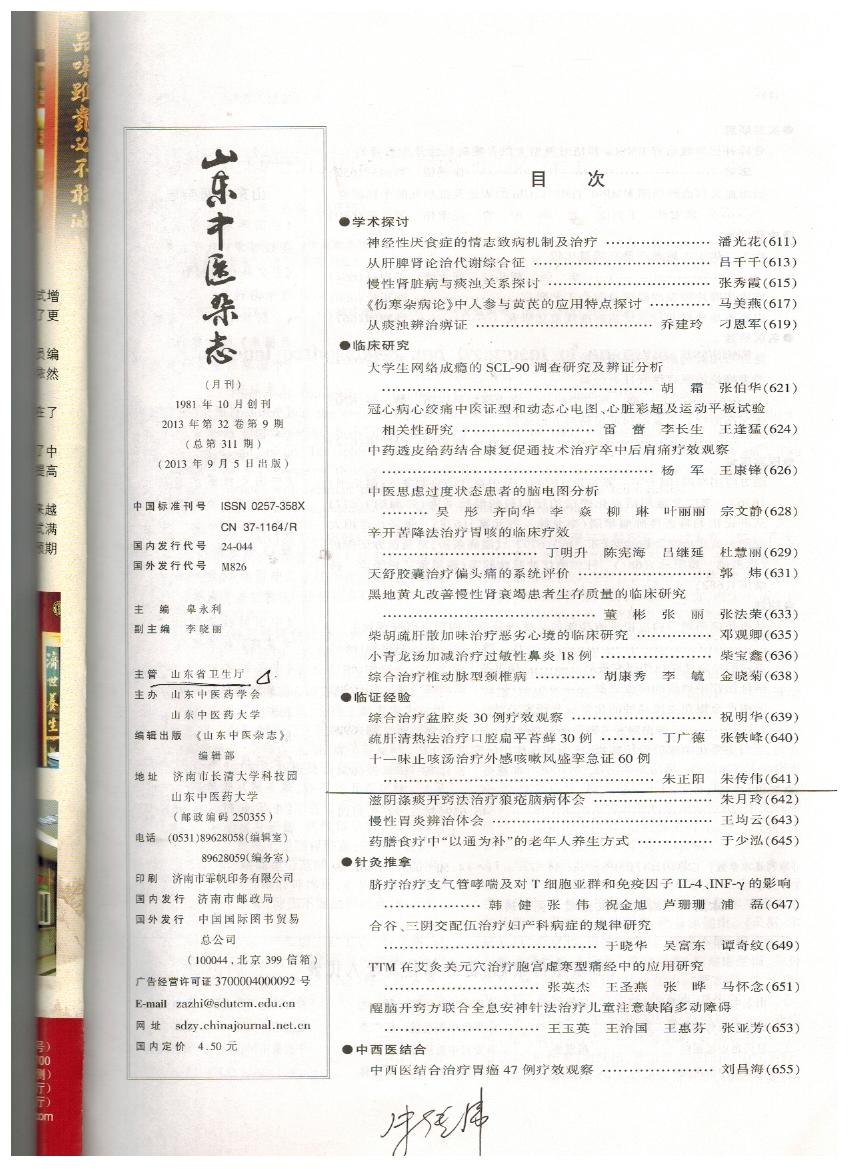 品味雖貴必不敢減
式增
了更
员编
依然
在了
了中
提高
来越
式满
濟世養生
山东中医杂志
(月刊)
1981 年 10 月创刊
2013 年第 32 卷第 9 期
(总第 311 期)
(2013 年 9 月 5 日出版)
中国标准刊号 ISSN 0257-358X
CN 37-1164/R
国内发行代号 24-044
国外发行代号 M826
主 编 皋永利
副主编 李晓丽
主管 山东省卫生厅
主办 山东中医药学会
山东中医药大学
编辑出版 《山东中医杂志》
编辑部
地址 济南市长清大学科技园
山东中医药大学
(邮政编码 250355)
电话 (0531)89628058(编辑室)
89628059(编务室)
印刷 济南市霏帆印务有限公司
国内发行 济南市邮政局
国外发行 中国国际图书贸易
总公司
(100044,北京 399 信箱)
广告经营许可证 3700004000092 号
E-mail zazhi@sdutcm.edu.cn
网址 sdzy.chinajournal.net.cn
国内定价 4.50 元
目 次
●学术探讨
神经性厌食症的情志致病机制及治疗 ………………… 潘光花(611)
从肝脾肾论治代谢综合征 ………………… 吕千千(613)
慢性肾脏病与痰浊关系探讨 ………………… 张秀霞(615)
《伤寒杂病论》中人参与黄芪的应用特点探讨 ………… 马美燕(617)
从痰浊辨治痹证 ………………… 乔建玲 刁恩军(619)
●临床研究
大学生网络成瘾的 SCL-90 调查研究及辨证分析
………………… 胡 霜 张伯华(621)
冠心病心绞痛中医证型和动态心电图、心脏彩超及运动平板试验
相关性研究 ………………… 雷 蕾 李长生 王逢猛(624)
中药透皮给药结合康复促通技术治疗卒中后肩痛疗效观察
………………… 杨 军 王康锋(626)
中医思虑过度状态患者的脑电图分析
……… 吴 彤 齐向华 李 焱 柳 琳 叶丽丽 宗文静(628)
辛开苦降法治疗胃咳的临床疗效
………………… 丁明升 陈宪海 吕继延 杜慧丽(629)
天舒胶囊治疗偏头痛的系统评价 ………………… 郭 炜(631)
黑地黄丸改善慢性肾衰竭患者生存质量的临床研究
………………… 董 彬 张 丽 张法荣(633)
柴胡疏肝散加味治疗恶劣心境的临床研究 ………… 邓观卿(635)
小青龙汤加减治疗过敏性鼻炎 18 例 ………………… 柴宝鑫(636)
综合治疗椎动脉型颈椎病 ………… 胡康秀 李 毓 金晓菊(638)
●临证经验
综合治疗盆腔炎 30 例疗效观察 ………………… 祝明华(639)
疏肝清热法治疗口腔扁平苔藓 30 例 ……… 丁广德 张铁峰(640)
十一味止咳汤治疗外感咳嗽风盛挛急证 60 例
………………… 朱正阳 朱传伟(641)
滋阴涤痰开窍法治疗狼疮脑病体会 ………………… 朱月玲(642)
慢性胃炎辨治体会 ………………… 王均云(643)
药膳食疗中“以通为补”的老年人养生方式 ………… 于少泓(645)
●针灸推拿
脐疗治疗支气管哮喘及对 T 细胞亚群和免疫因子 IL-4、INF-γ 的影响
………………… 韩 健 张 伟 祝金旭 芦珊珊 浦 磊(647)
合谷、三阴交配伍治疗妇产科病症的规律研究
………………… 于晓华 吴富东 谭奇纹(649)
TTM 在艾灸关元穴治疗胞宫虚寒型痛经中的应用研究
………………… 张英杰 王圣燕 张 晔 马怀念(651)
醒脑开窍方联合全息安神针法治疗儿童注意缺陷多动障碍
………………… 王玉英 王治国 王惠芬 张亚芳(653)
●中西医结合
中西医结合治疗胃癌 47 例疗效观察 ………………… 刘昌海(655)